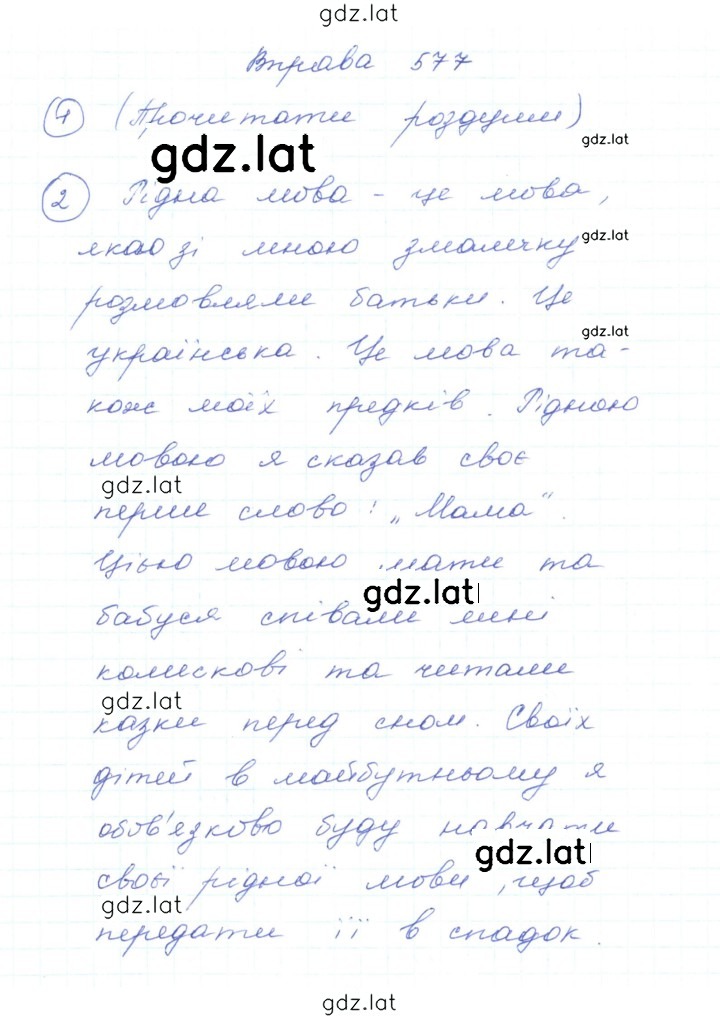 gdz.lat
Вправа 577
1 (Прочитати роздуми)
gdz.lat
gdz.lat
2 Рідна мова - це мова,
якою зі мною змалечку
gdz.lat
розмовляли батьки. Це
gdz.lat
українська. Це мова та-
кож моїх предків. Рідною
мовою я сказав своє
gdz.lat
перше слово: „Мама“.
Цією мовою мати та
gdz.lat
бабуся співали мені
колискові та читали
gdz.lat
казки перед сном. Своїх
дітей в майбутньому я
обов'язково буду навчати
gdz.lat
своєї рідної мови, щоб
gdz.lat
передати її в спадок.
gdz.lat